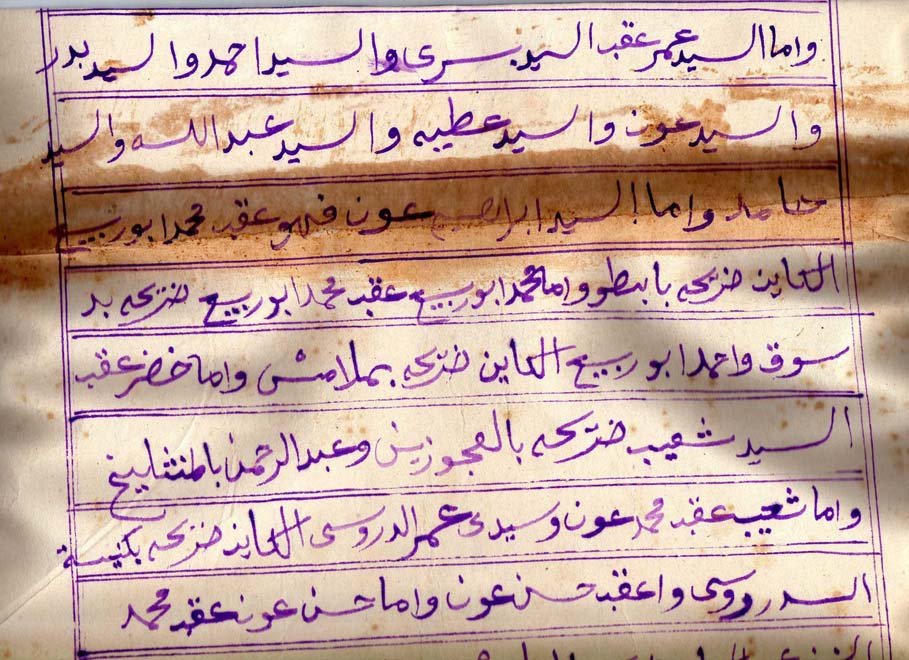 واما السيد عمر عقب السيد يسرى والسيد احمد والسيد بدر
والسيد عون والسيد عطيه والسيد عبد الله والسيد
حامد واما السيد ابراهيم عون فهو عقب محمد ابو ربيع
الكاين ضريحه بابطو واما محمد ابو ربيع عقب محمد ابو ربيع ضريحه بد
سوق واحمد ابو ربيع الكاين ضريحه بملامس واما خضر عقب
السيد شعيب ضريحه بالعجوزين وعبد الرحمن بالمنشليخ
واما شعيب عقب محمد عون وسيدى عمر الدروسى الكاين ضريحه بكنيسة
السردوسى واعقب حسن عون واما حسن عون عقب محمد